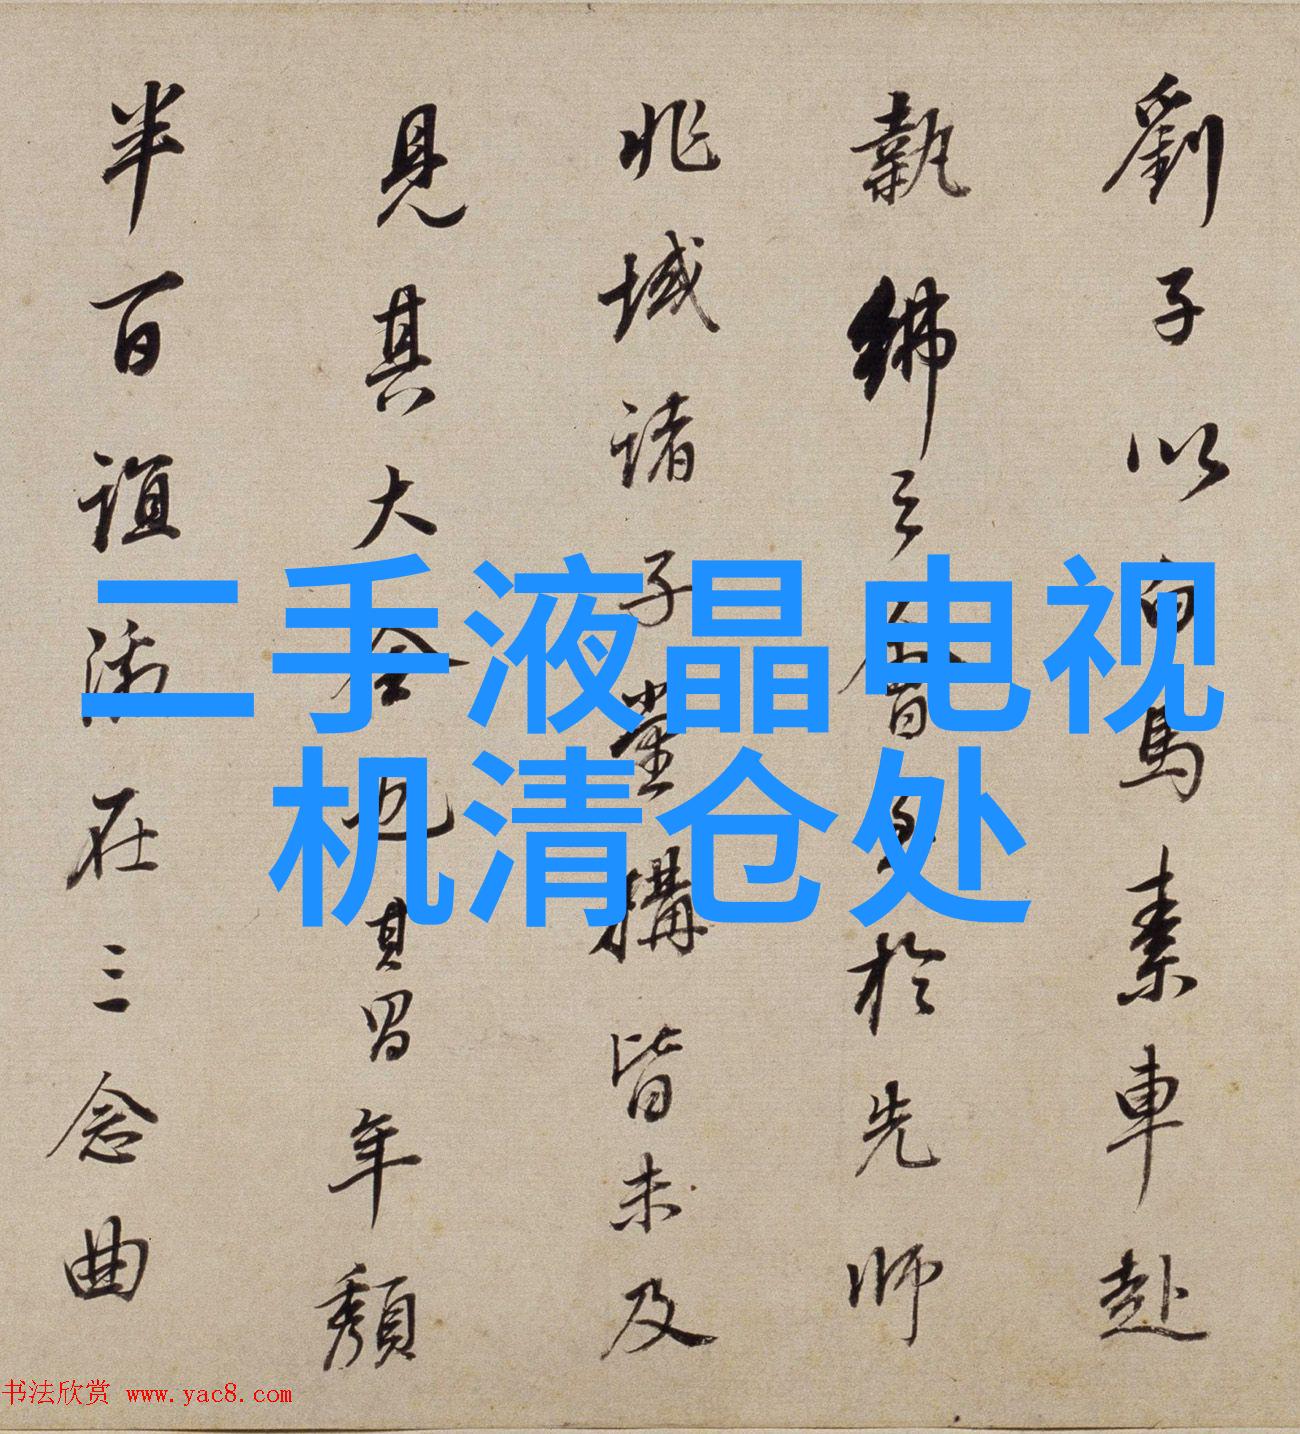 劉子以白馬素車赴
執紼之會於先師
兆域諸子堂構皆未及
見其大也其年頹
半百誼在三念曲
二手液晶电视
机清仓处
书法欣赏 www.yac8.com